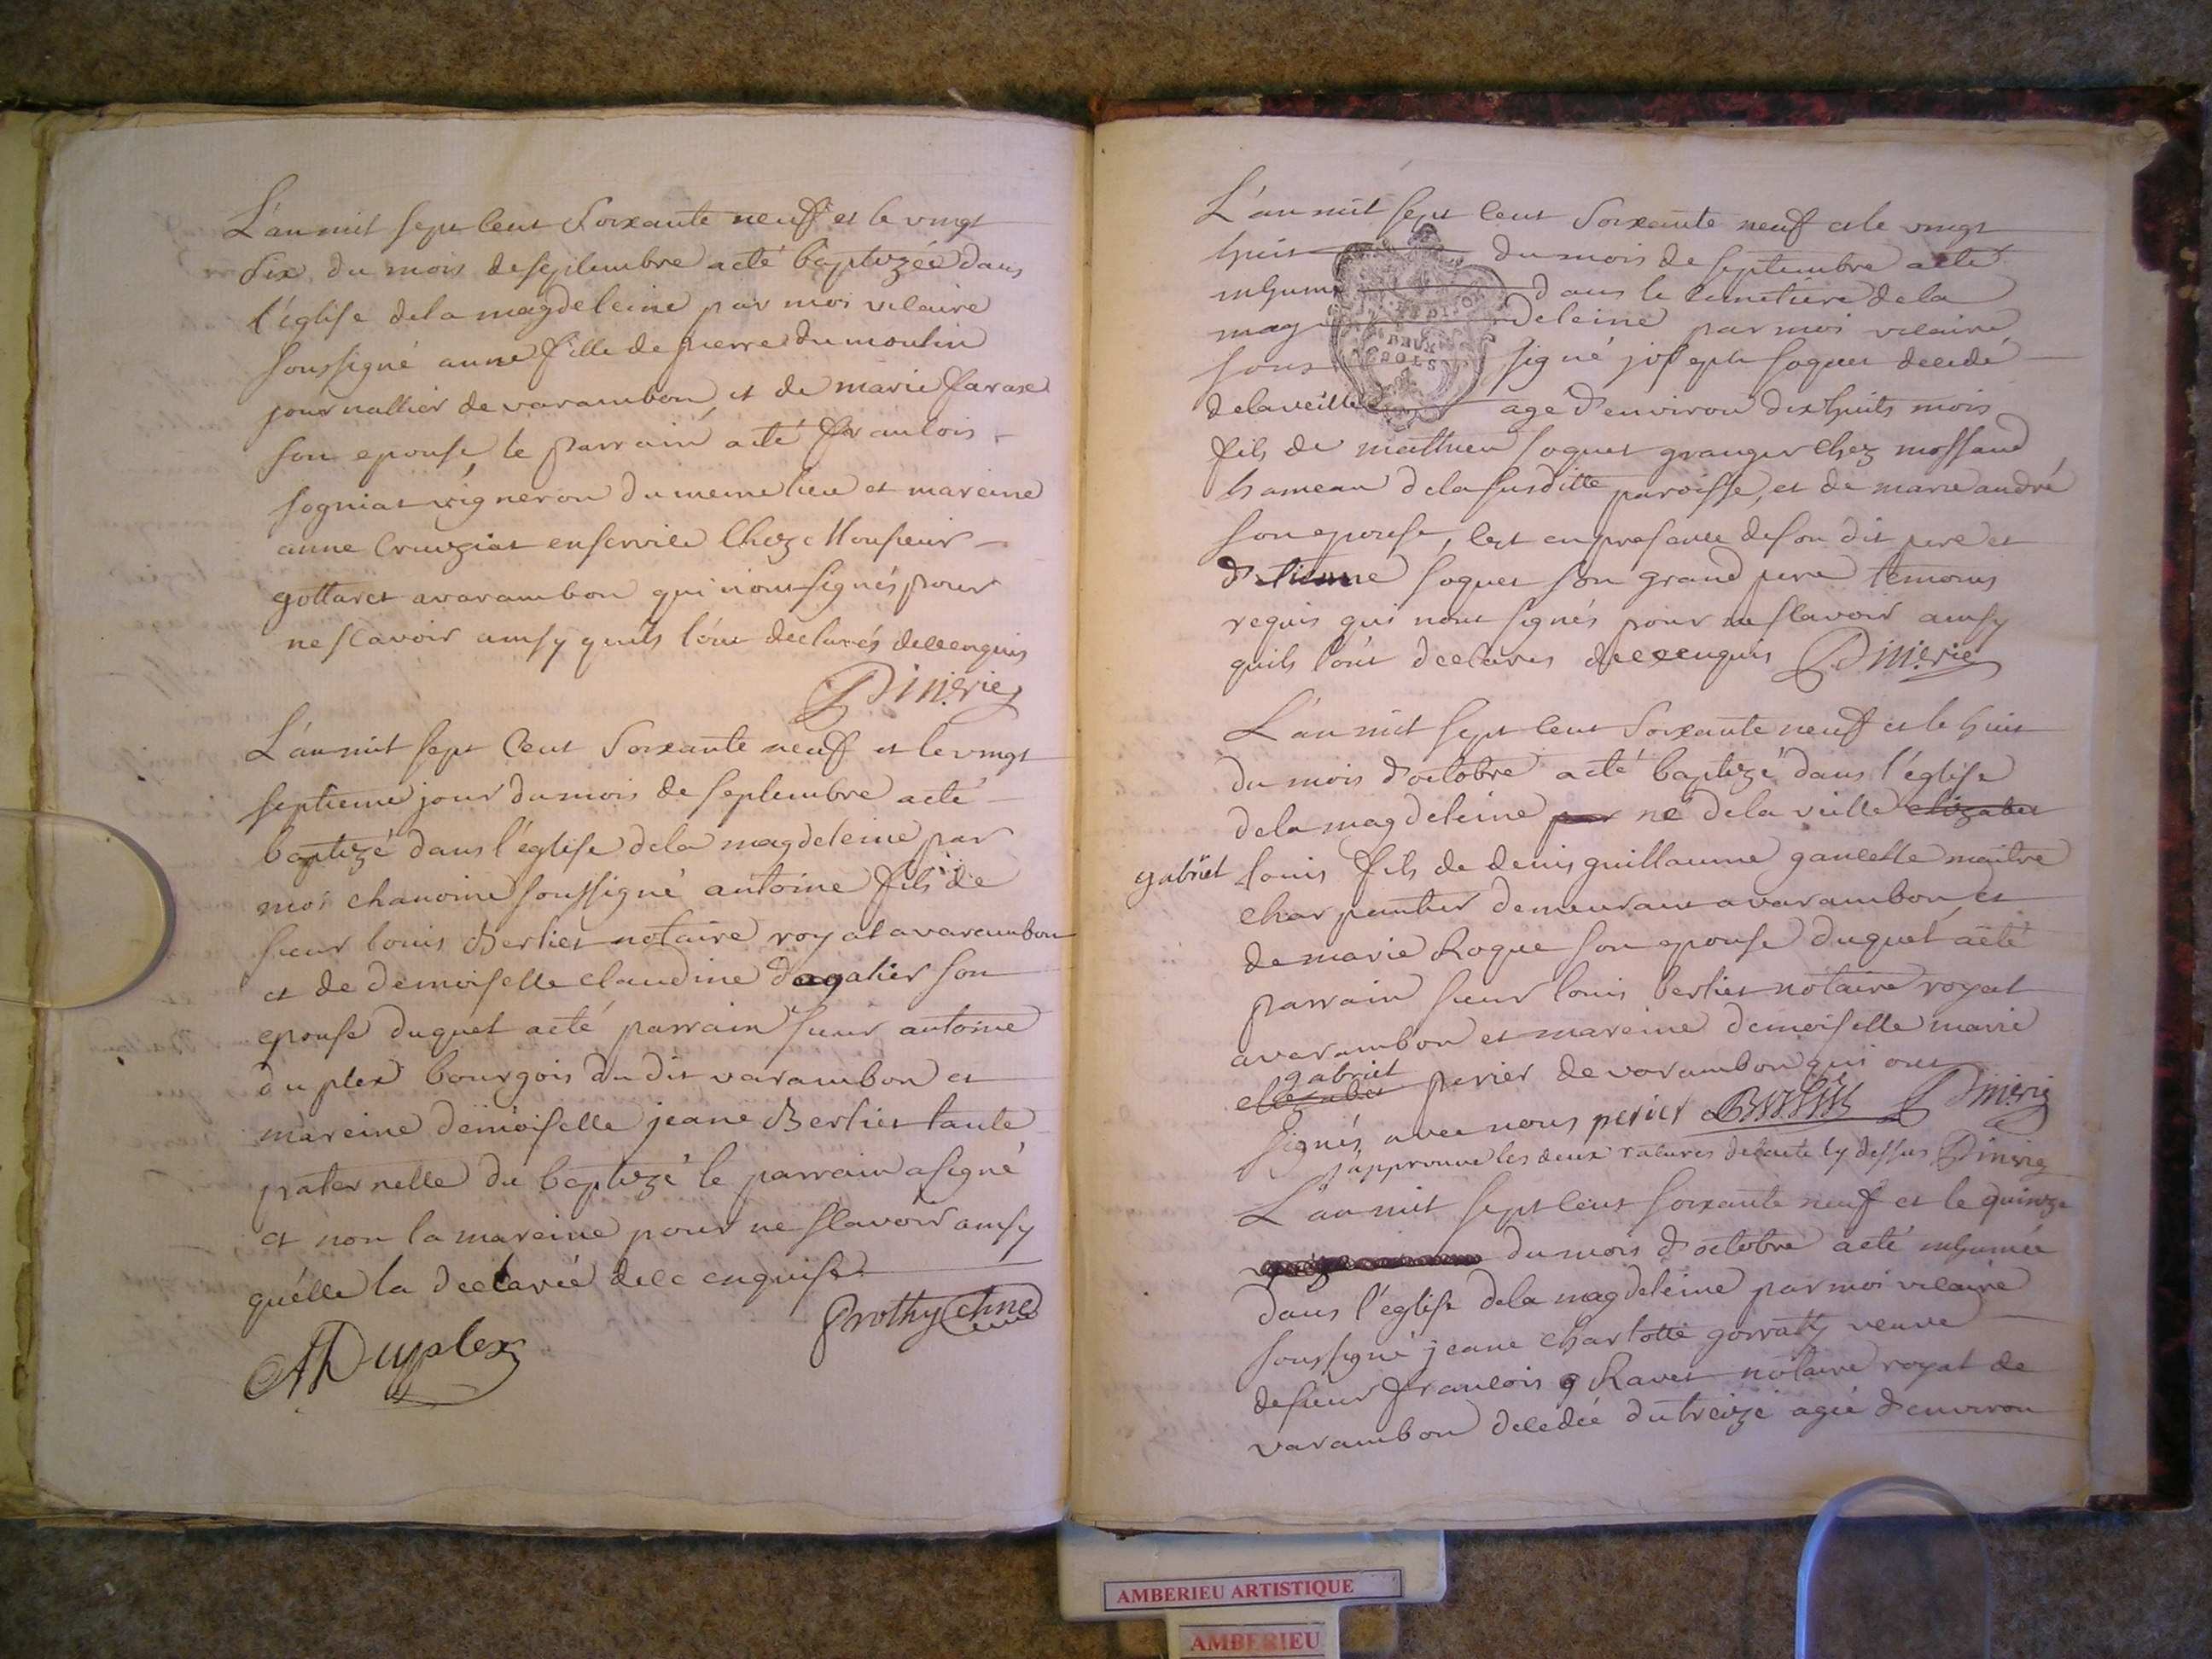 L'an mil sept cent soixante neuff et le vingt
six du mois de septembre a eté baptizéé dans
l'église de la magdeleine par moi vicaire
soussigné anne fille de pierre dumoulin
journallier de varambon et de marie farase
son epouse, le parrain a eté francois
sogniat vigneron du meme lieu et mareine
anne Cruiziat en service Chez Monsieur
gottaret a varambon qui n'ont signés pour
ne scavoir ainsy quils l'ont declarés de ce enquis
Dimerie
L'an mil sept Cent soixante neuff et le vingt
septieme jour du mois de septembre a eté
baptizé dans l'église de la magdeleine par
moi chanoine soussigné antoine fils de
sieur louis Berliet notaire royal a varambon
et de demoiselle claudine dagalier son
epouse duquel a eté parrain sieur antoine
duplex bourgois du dit varambon et
mareine demoiselle jeane Berliet tante
paternelle du baptizé le parrain a signé
et non la mareine pour ne scavoir ainsy
quélle la declarée de ce enquise
ADuplex
Prothy chne
L'an mil sept cent soixante neuff et le vingt
huit du mois de septembre a eté
inhumé dans le cimetiere de la
magdeleine par moi vicaire
soussigné joseph soquet decedé
de la veille agé d'environ dix huits mois
fils de matthieu soquet granger chez mossand
hameau de la susditte paroisse, et de marie andré
son epouse, c'est en presence de son dit pere et
d'etienne soquet son grand pere temoins
requis qui n'ont signés pour ne scavoir ainsy
quils l'ont declarés de ce enquis Dimerie
L'an mil sept cent soixante neuff et le huit
du mois d'octobre a eté baptizé dans l'église
de la magdeleine par né de la veille elizabet
gabriel louis fils de denis guillaume gancelle maitre
charpentier demeurant a varambon et
de marie Roque son epouse duquel a eté
parrain sieur louis berliet notaire royal
a varambon et mareine demoiselle marie
gabriel
elizabet perier de varambon qui ont
signés avec nous perier Berliet Dimerie
j'approuve les deux ratures de l'acte cy dessus Dimerie
L'an mil sept cent soixante neuf et le quinze
du mois d'octobre a eté inhumée
dans l'église de la magdeleine par moi vicaire
soussigné jeane charlotte gorraty veuve
de sieur francois q Ravet notaire royal de
varambon decedée du treize agée d'environ
AMBERIEU ARTISTIQUE
AMBERIEU